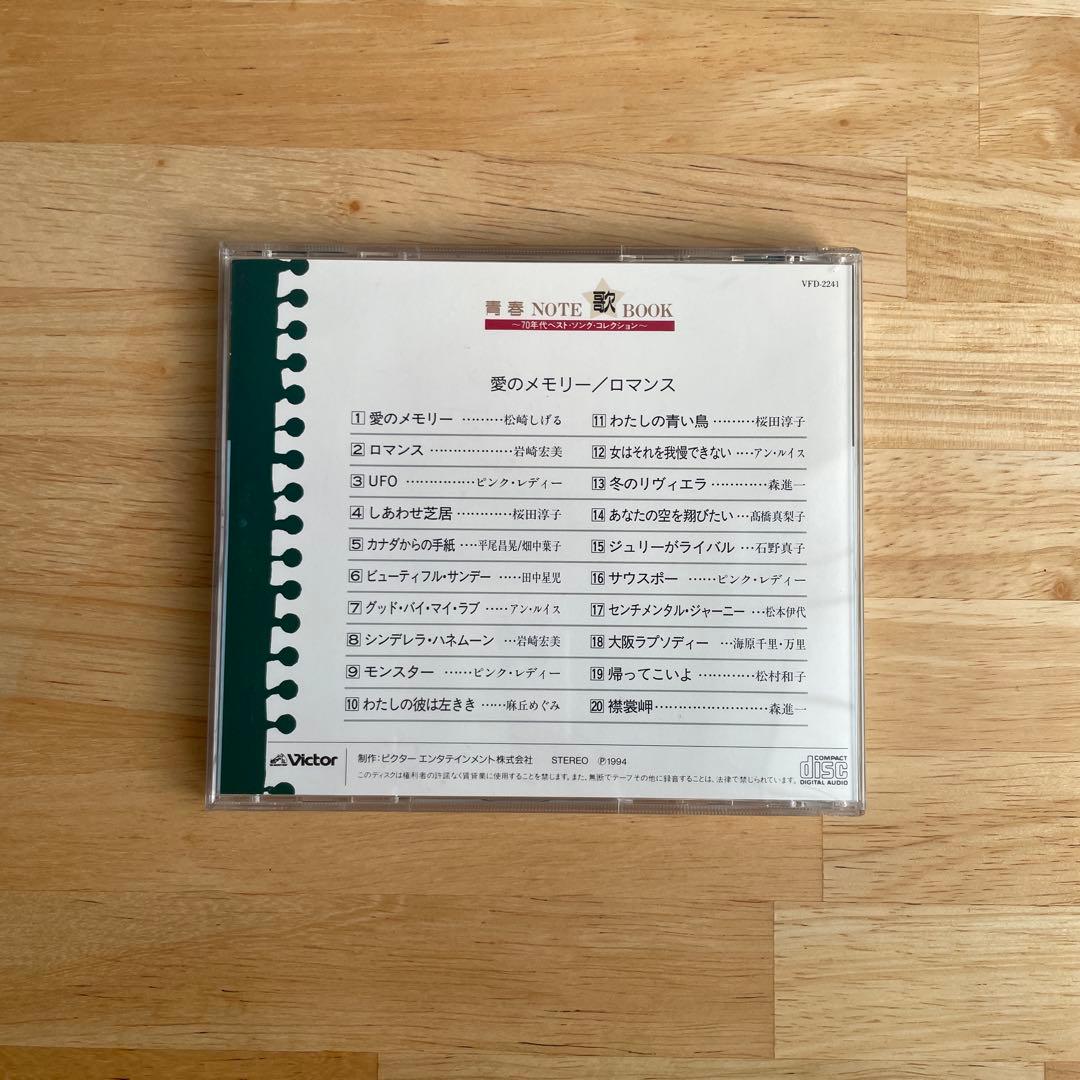 VFD-2241
青春 NOTE 歌 BOOK
〜70年代ベスト・ソング・コレクション〜
愛のメモリー/ロマンス
1 愛のメモリー ………松崎しげる
2 ロマンス ………………岩崎宏美
3 UFO ……………ピンク・レディー
4 しあわせ芝居 …………桜田淳子
5 カナダからの手紙 ‥‥平尾昌晃/畑中葉子
6 ビューティフル・サンデー ‥‥‥田中星児
7 グッド・バイ・マイ・ラブ ‥‥‥アン・ルイス
8 シンデレラ・ハネムーン …岩崎宏美
9 モンスター ……ピンク・レディー
10 わたしの彼は左きき ……麻丘めぐみ
11 わたしの青い鳥 ………桜田淳子
12 女はそれを我慢できない ‥‥アン・ルイス
13 冬のリヴィエラ …………森進一
14 あなたの空を翔びたい …髙橋真梨子
15 ジュリーがライバル …石野真子
16 サウスポー ……ピンク・レディー
17 センチメンタル・ジャーニー …松本伊代
18 大阪ラプソディー …海原千里・万里
19 帰ってこいよ …………松村和子
20 襟裳岬……………………森進一
Victor
制作:ビクター エンタテインメント株式会社 STEREO Ⓟ1994
このディスクは権利者の許諾なく賃貸業に使用することを禁じます。また、無断でテープその他に録音することは、法律で禁じられています。
COMPACT
disc
DIGITAL AUDIO